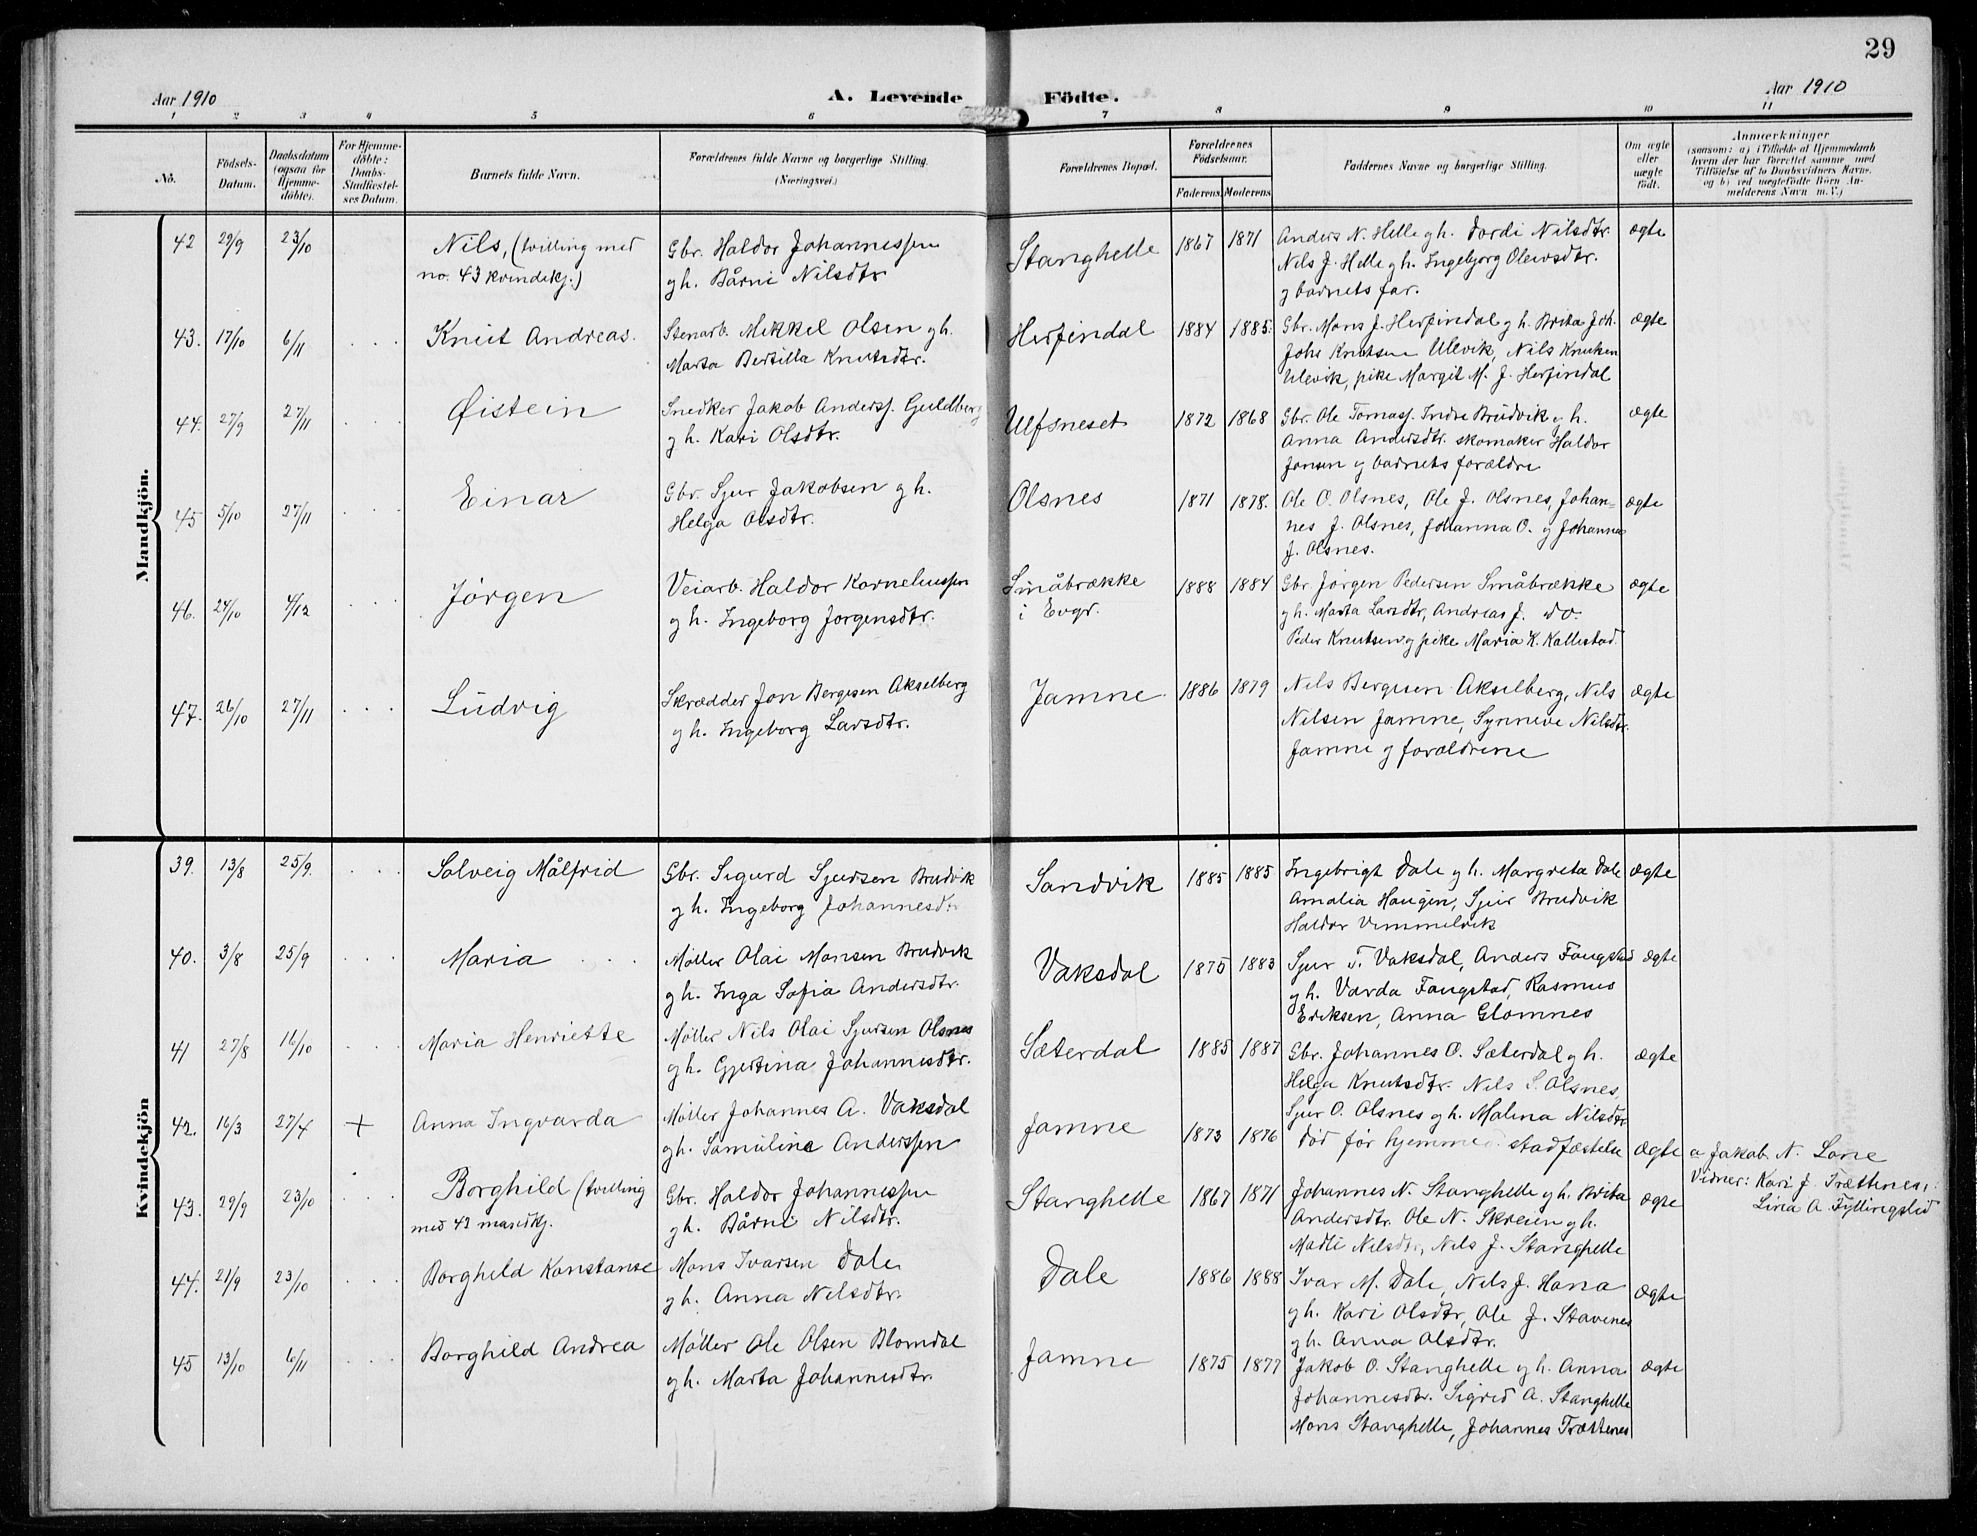 29
Aar 1910
A. Levende Födte.
Aar 1910
1 2 3 4 5 6 7 8 9 10 11
No. Födsels-Datum. Daabsdatum (ogsaa för Hjemme-döbte). For Hjemme-döbte: Daabs-Stadfæstel-ses Datum. Barnets fulde Navn. Forældrenes fulde Navne og borgerlige Stilling. (Næringsvei.) Forældrenes Bopæl. Forældrenes Födselsaar. Faderens. Moderens. Faddernes Navne og borgerlige Stilling. Om ægte eller uægte födt. Anmærkninger (saasom: a) i Tilfælde af Hjemmedaab hvem der har forrettet samme med Tilföielse af to Daabsvidners Navne, og b) ved uægtefödte Börn An-melderens Navn m. V.)
Mandkjön.
42 29/9 23/10 Nils, (tvilling med Gbr. Haldor Johannessen Stanghelle 1867 1871 Anders N. Helle gh. Dordi Nilsdtr. ægte
no. 43 kvindekj.) gh. Bårni Nilsdtr Nils J. Helle gh. Ingebjorg Oleivsdtr.
g barnets far.
43. 17/10 6/11 . . . Knut Andreas. Stenarb. Mikkel Olsen gh. Herfindal 1884 1885. Gbr. Mons J. Herfindal gh. Brita Joh. ægte
Marta Bertilla Knutsdtr. Johs Knutsen Ulevik, Nils Knutsen
Ulevik, pike Margit M. J. Herfindal
44. 27/9 27/11 . . . Øistein Snedker Jakob Anderss. Guldberg Ulfsneset 1872 1868 Gbr. Ole Tomass. Indre Brudvik gh. ægte
gh. Kari Olsdtr. Anna Andersdtr. skomaker Haldor
Jonsen g barnets forældre
45 5/10 27/11 . . . Einar Gbr. Sjur Jakobsen gh. Olsnes 1871 1878. Ole O. Olsnes, Ole J. Olsnes, Johan= ægte
Helga Olsdtr. nes J. Olsnes, Johanna O. g Johannes
J. Olsnes.
46. 24/10 4/12 . . . Jørgen Veiarb. Haldor Korneliussen Småbrække 1888 1884 Gbr Jørgen Pedersen Småbrække ægte
gh. Ingeborg Jorgensdtr. i Evgr. gh. Marta Larsdtr, Andreas J. do.
Peder Knutsen g pike Maria K. Kallestad.
47. 26/10 27/11 . . . Ludvig Skrædder Jon Bergesen Akselberg Jamne. 1886 1879 Nils Bergesen Akselberg, Nils ægte
gh. Ingeborg Larsdtr. Nilsen Jamne, Synneve Nilsdtr.
Jamne g forældrene
Kvindekjön
39. 13/8 25/9. . . . Solveig Målfrid Gbr. Sigurd Sjursen Brudvik Sandvik 1885 1885 Ingebrigt Dale gh. Margreta Dale ægte
gh. Ingeborg Johannesd. Amalia Haugen, Sjur Brudvik
Haldor Vimmelvik
40. 3/8 25/9 . . . Maria . . . Møller Olai Monsen Brudvik Vaksdal 1875 1883 Sjur T. Vaksdal, Anders Fangstad ægte
gh. Inga Sofia Andersdtr. gh. Varda Fangstad, Rasmus
Eriksen, Anna Glomnes
41 27/8 16/10 . . . Maria Henriette Møller Nils Olai Sjursen Olsnes Sæterdal 1885 1887 Gbr. Johannes O. Sæterdal gh. ægte
gh. Gjertina Johannesdtr. Helga Knutsdtr. Nils S. Olsnes,
Sjur O. Olsnes gh. Malina Nilsdtr
42. 16/3 27/4 + Anna Ingvarda Møller Johannes A. Vaksdal Jamne 1873 1876 Død før hjemmed. stadfæstelse ægte a Jakob N. Lone
gh. Samuline Anderssen Vidner: Kari J. Trættenes,
Lina A Fyllingslid
43. 29/9 23/10 . . . Borghild (tvilling Gbr. Haldor Johannessen Stanghelle 1867 1871 Johannes N. Stanghelle gh. Brita ægte
med 42 mandkj. gh. Bårni Nilsdtr. Andersdtr. Ole N. Skreien gh.
Madli Nilsdtr, Nils J. Stanghelle
44. 21/9 23/10 . . . Borghild Konstanse Mons Ivarsen Dale Dale 1886 1888 Ivar M. Dale, Nils J. Hana ægte
gh. Anna Nilsdtr. gh. Kari Olsdtr, Ole J. Stavenes
gh. Anna Olsdtr.
45 13/10 6/11 . . . Borghild Andrea Møller Ole Olsen Blomdal Jamne 1875 1877 Jakob O. Stanghelle gh. Anna ægte
gh. Marta Johannesdtr. Johannesdtr. Sigrid A. Stanghelle
Mons Stanghelle, Johannes Trættenes